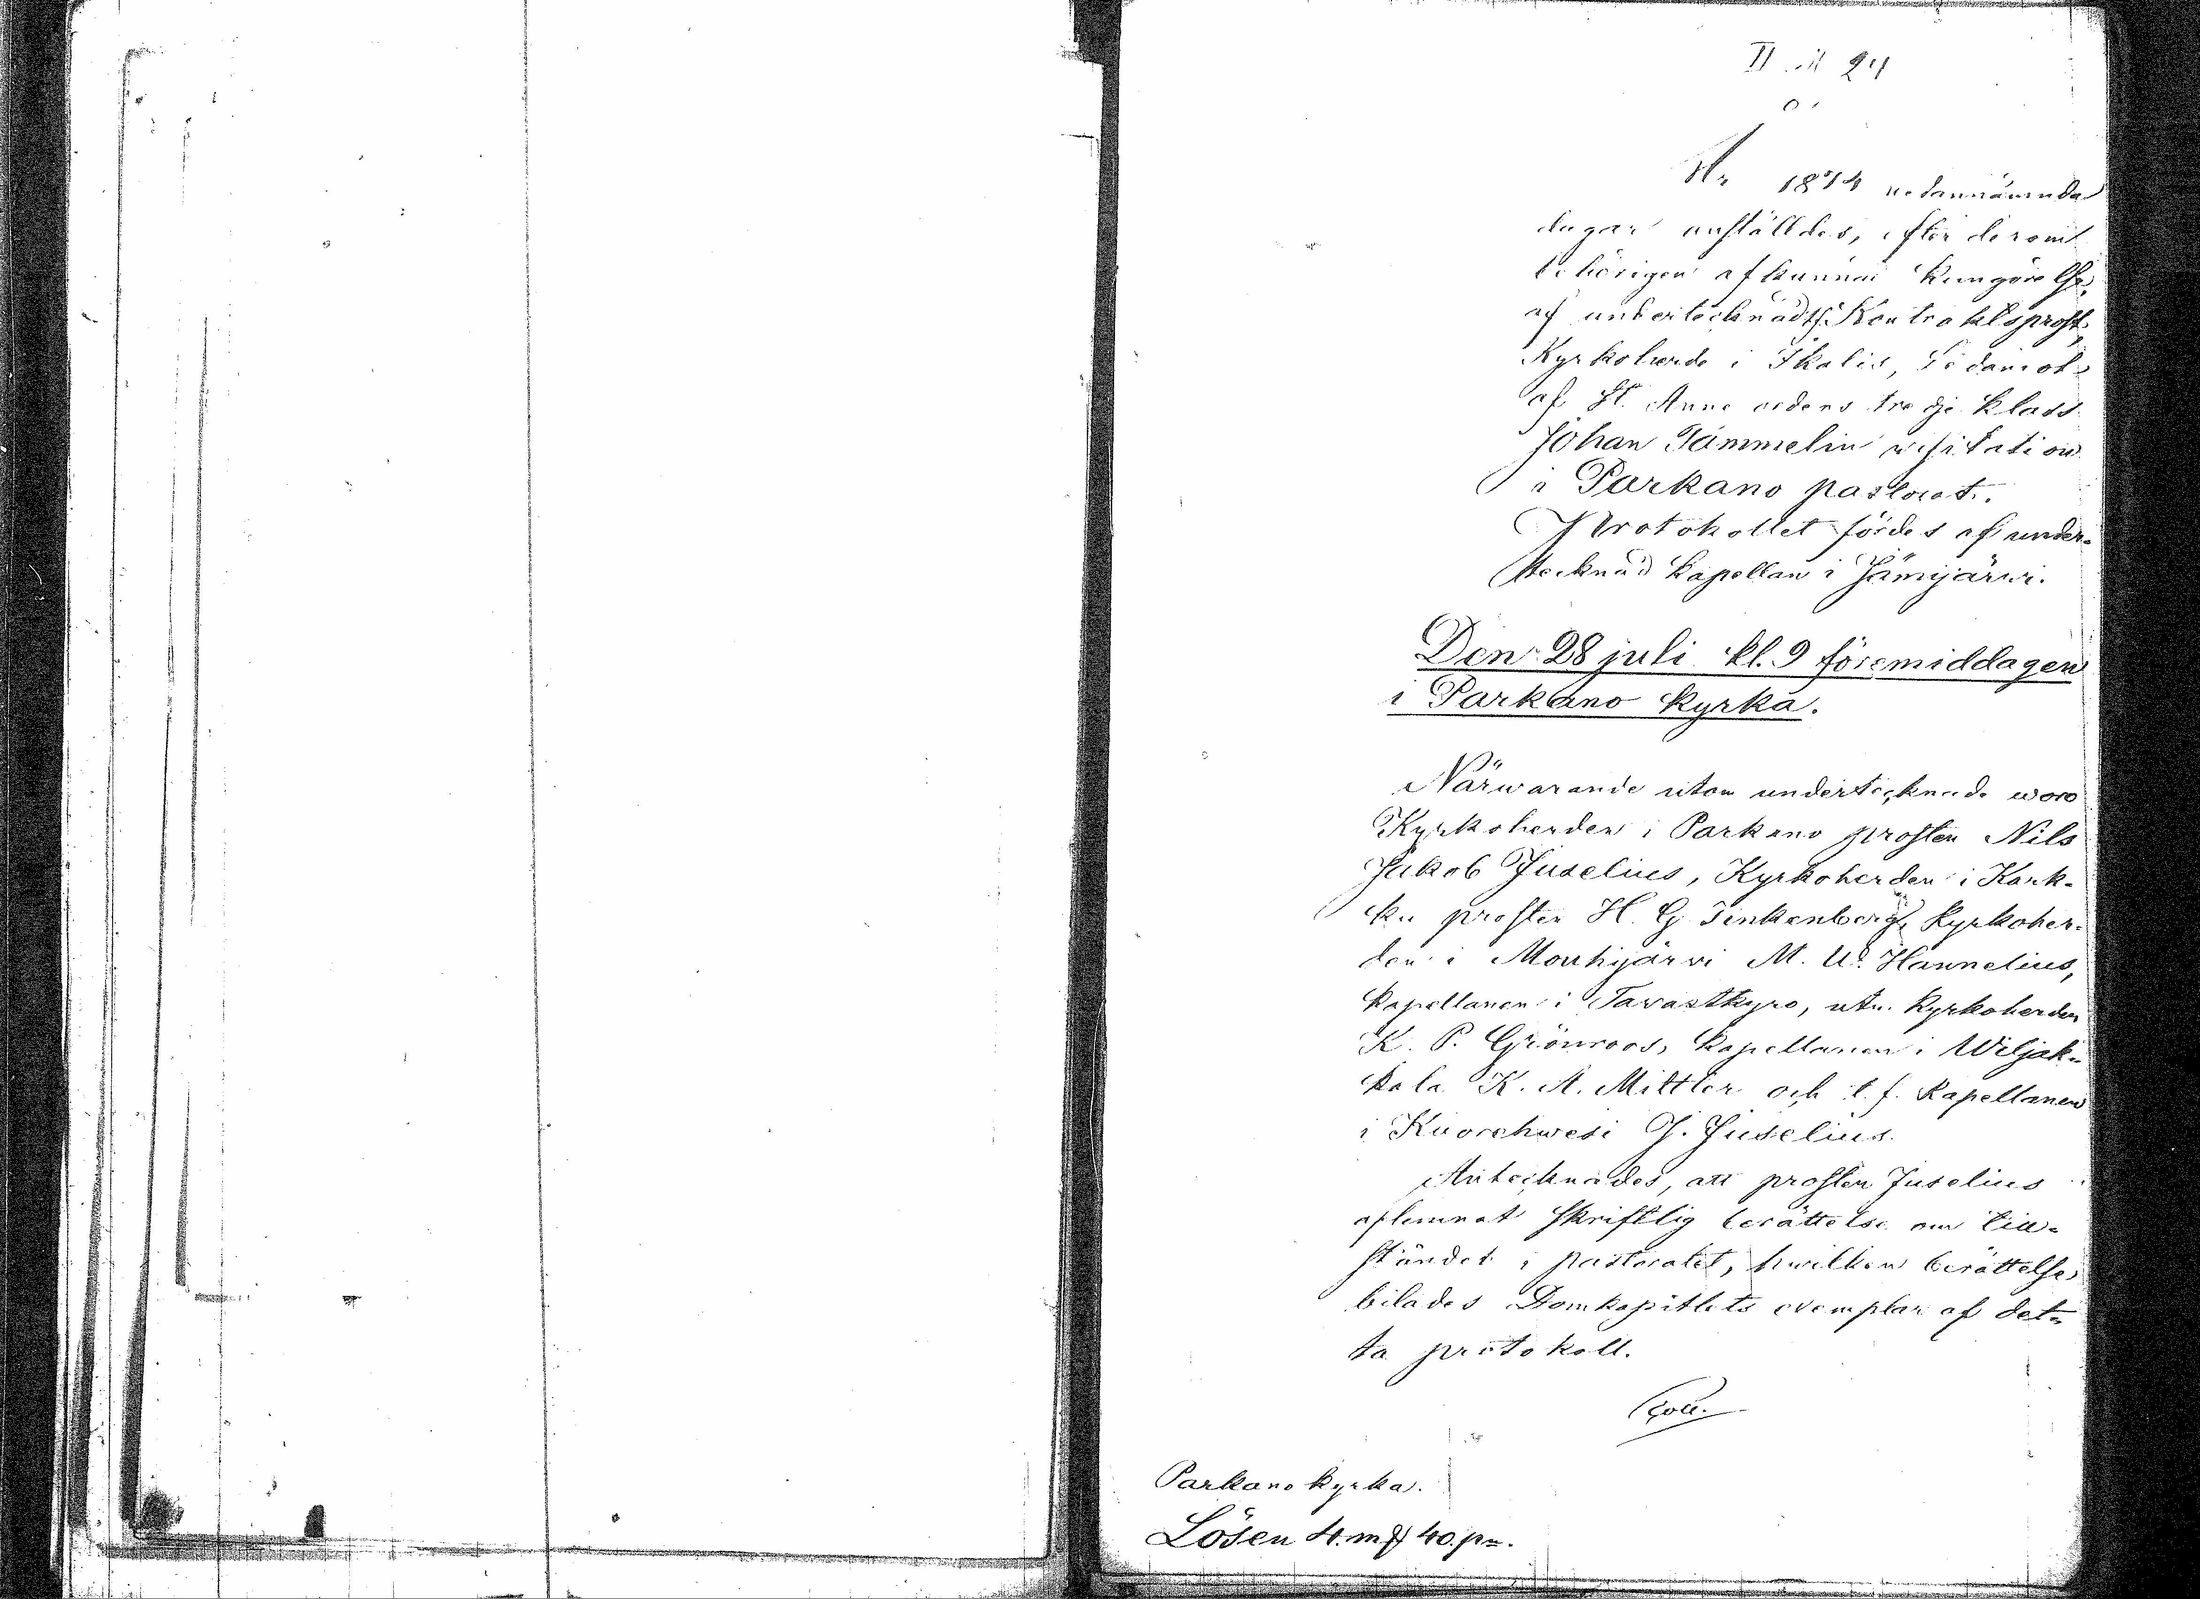 II 24
År 1874 nedannämnda
dagar anställdes, efter derom
behörigen afkunnad kungörelse,
af undertecknad, Kontraktsprost,
Kyrkoherde i Ikalis, Riddaren
af St. Anne ordens tredje klass
Johan Tammelin wisitation
i Parkano pastorat.
Protokollet fördes af under-
tecknad kapellan i Jämijärwi.
Den 28 juli kl. 9 föremiddagen
i Parkano kyrka.
Närwarande utom undertecknade woro
Kyrkoherden i Parkano prosten Nils
Jakob Juselius, Kyrkoherden i Kark-
ku prosten H. G. Zinkenberg, Kyrkoher-
den i Mouhijärwi M. Wd. Hannelius,
kapellanen i Tavastkyro, utn. Kyrkoherden
K. P. Grönroos, kapellanen i Wiljak-
kala K. A. Mittler och t.f. kapellanen
i Kuorehwesi J. Juselius.
Antecknades, att prosten Juselius
aflemnat skriftlig berättelse om till-
ståndet i pastoratet, hwilken berättelse
bilades Domkapitlets exemplar af det-
ta protokoll.
Parkano kyrka.
Lösen 4 mk 40 pn.